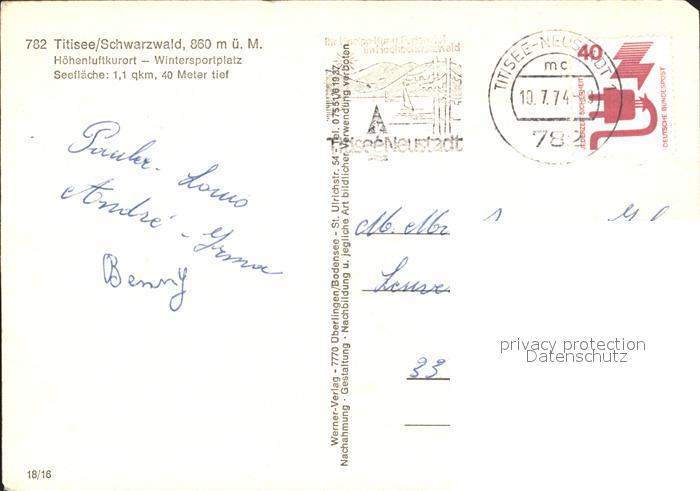 782 Titisee/Schwarzwald, 860 m ü. M.
Höhenluftkurort — Wintersportplatz
Seefläche: 1,1 qkm, 40 Meter tief
André - Irma
Benny
18/16
Werner-Verlag - 7770 Überlingen/Bodensee - St. Ulrichstr. 54 - Tel. 07551/61937
Nachahmung - Gestaltung - Nachbildung u. jegliche Art bildlicher Verwendung verboten.
im Hochschwarzwald
Titisee-Neustadt
TITISEE-NEUSTADT 1
mc
19.7.74
782
40
JEDERZEIT SICHERHEIT
DEUTSCHE BUNDESPOST
33
privacy protection
Datenschutz